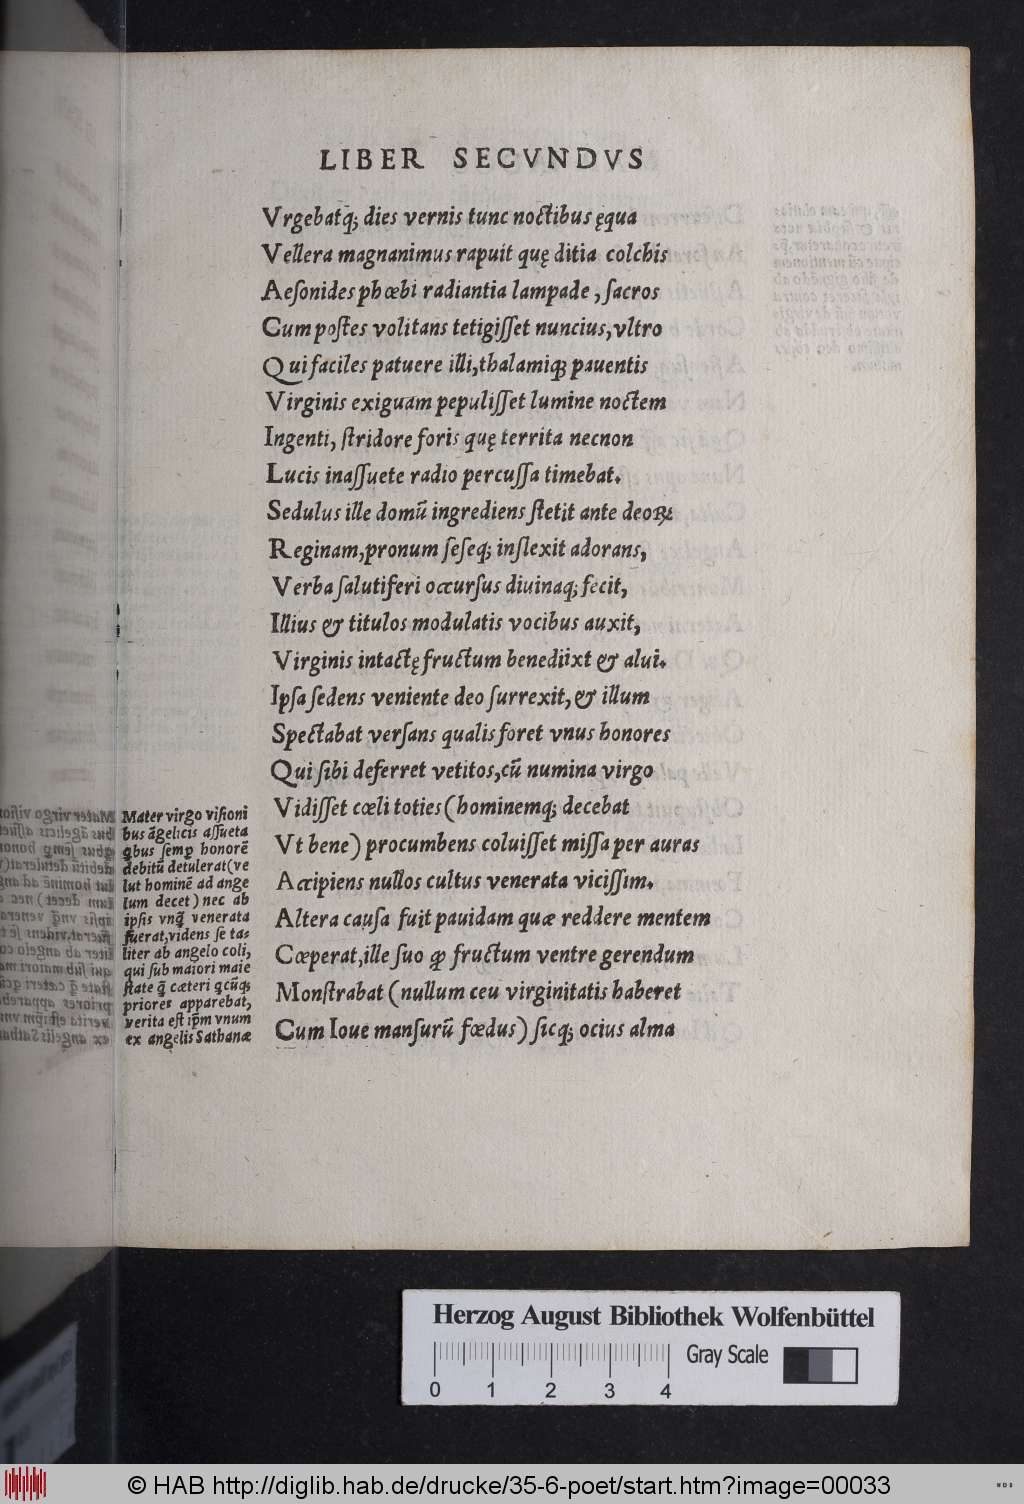 LIBER SECVNDVS
Vrgebatq; dies vernis tunc noctibus ęqua
Vellera magnanimus rapuit quę ditia colchis
Aeſonides phœbi radiantia lampade, ſacros
Cum poſtes volitans tetigiſſet nuncius, vltro
Qui faciles patuere illi, thalamiq; pauentis
Virginis exiguam pepuliſſet lumine noctem
Ingenti, ſtridore foris quę territa necnon
Lucis inaſſuete radio percuſſa timebat.
Sedulus ille domū ingrediens ſtetit ante deoꝝ
Reginam, pronum ſeſeq; inflexit adorans,
Verba ſalutiferi occurſus diuinaq; fecit,
Illius & titulos modulatis vocibus auxit,
Virginis intactę fructum benediixt & alui.
Ipſa ſedens veniente deo ſurrexit, & illum
Spectabat verſans qualis foret vnus honores
Qui ſibi deferret vetitos, cū numina virgo
Vidiſſet cœli toties (hominemq; decebat
Vt bene) procumbens coluiſſet miſſa per auras
Accipiens nullos cultus venerata viciſſim.
Altera cauſa fuit pauidam quæ reddere mentem
Cœperat, ille ſuo ꝙ fructum ventre gerendum
Monſtrabat (nullum ceu virginitatis haberet
Cum Ioue manſurū fœdus) ſicq; ocius alma
Mater virgo viſioni
bus āgelicis aſſueta
q̄bus ſemꝑ honorē
debitū detulerat (ve
lut hominē ad ange
lum decet) nec ab
ipſis vnq̄ venerata
fuerat, videns ſe ta-
liter ab angelo coli,
qui ſub maiori maie
ſtate q̄ cæteri qcūq;
priores apparebat,
verita eſt ip̄m vnum
ex angelis Sathanæ
Herzog August Bibliothek Wolfenbüttel
Gray Scale
0 1 2 3 4
© HAB http://diglib.hab.de/drucke/35-6-poet/start.htm?image=00033